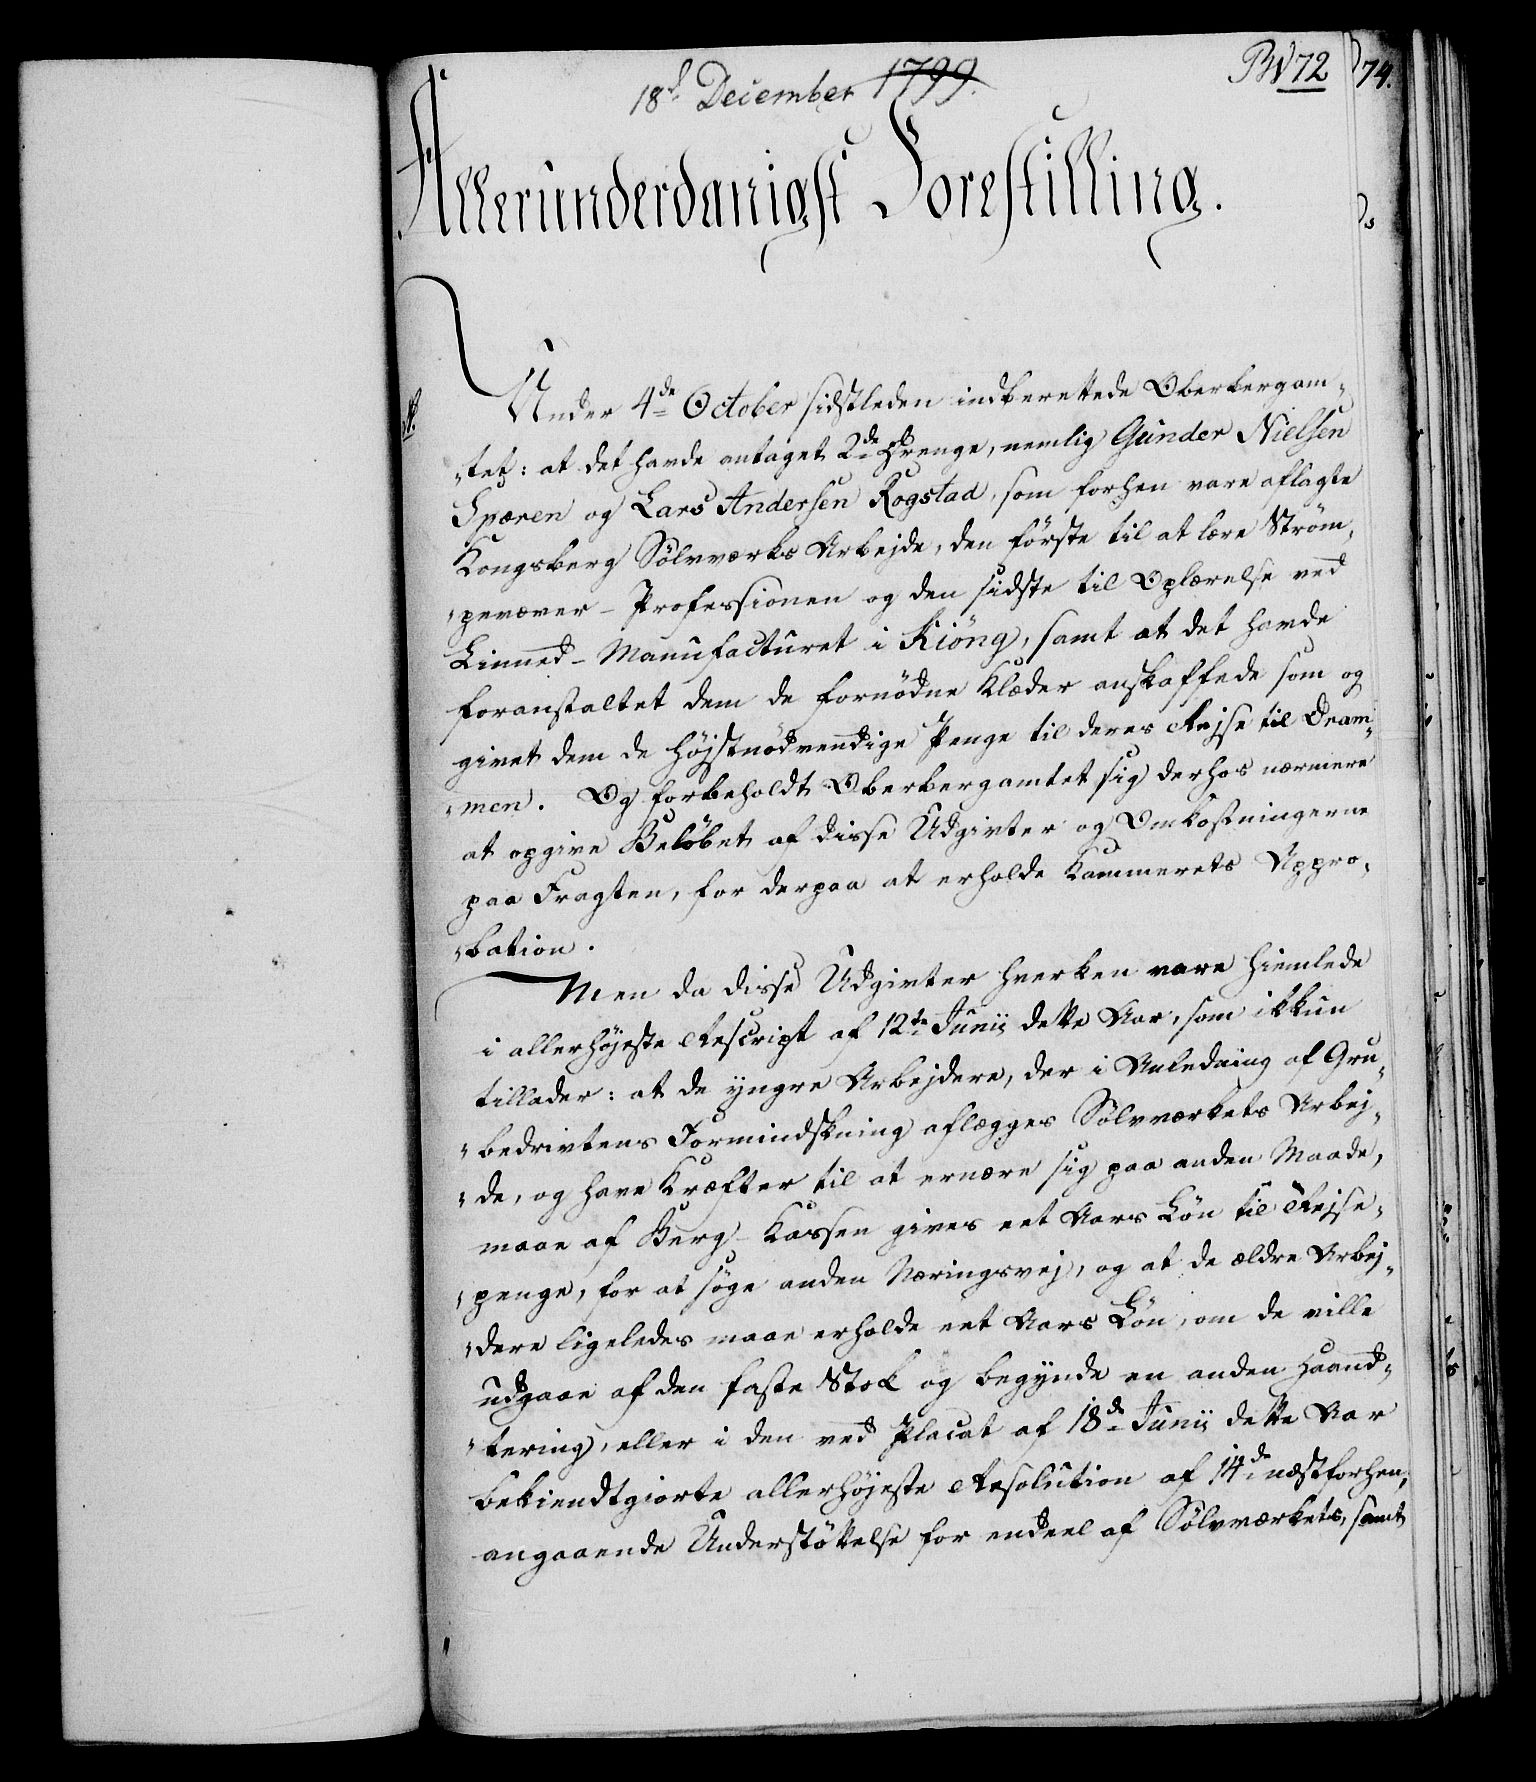 18d December 1799.
BW 72
74.
Allerunderdanigst Forestilling.
Under 4de October sidstleden indberettede Oberbergam-
"tet: at det havde antaget 2de Drenge, nemlig Gunder Nielsen
Spæren og Lars Andersen Rogstad, som forhen vare aflagte
Kongsberg Sölvværks Arbejde, den förste til at lære Ström-
"pevæver-Professionen og den sidste til Oplærelse ved
Linned-Manufacturet i Kiöng, samt at det havde
foranstaltet dem de fornödne Klæder anskaffede som og
givet dem de höjstnödvendige Penge til deres Rejse til Dram-
"men. Og forbeholdt Oberbergamtet sig derhos nærmere
at opgive Belöbet af disse Udgivter og Omkostningerne
paa Fragten, for derpaa at erholde Kammerets Appro-
"bation.
Men da disse Udgivter hverken vare hiemlede
i allerhöjeste Rescript af 12te Junii dette Aar, som ikkun
tillader: at de yngre Arbejdere, der i Anledning af Gru-
"bedrivtens Formindskning aflægges Sölvværkets Arbej-
"de, og have Kræfter til at ernære sig paa anden Maade,
maae af Berg-Kassen gives eet Aars Lön til Rejse-
"penge, for at söge anden Næringsvej, og at de ældre Arbej-
"dere ligeledes maae erholde eet Aars Lön, om de ville
udgaae af den faste Stok og begynde en anden Haand-
"tering, eller i den ved Placat af 18de Junii dette Aar
bekiendtgiorte allerhöjeste Resolution af 14de næstforhen,
angaaende Understöttelse for endeel af Sölvværkets, samt